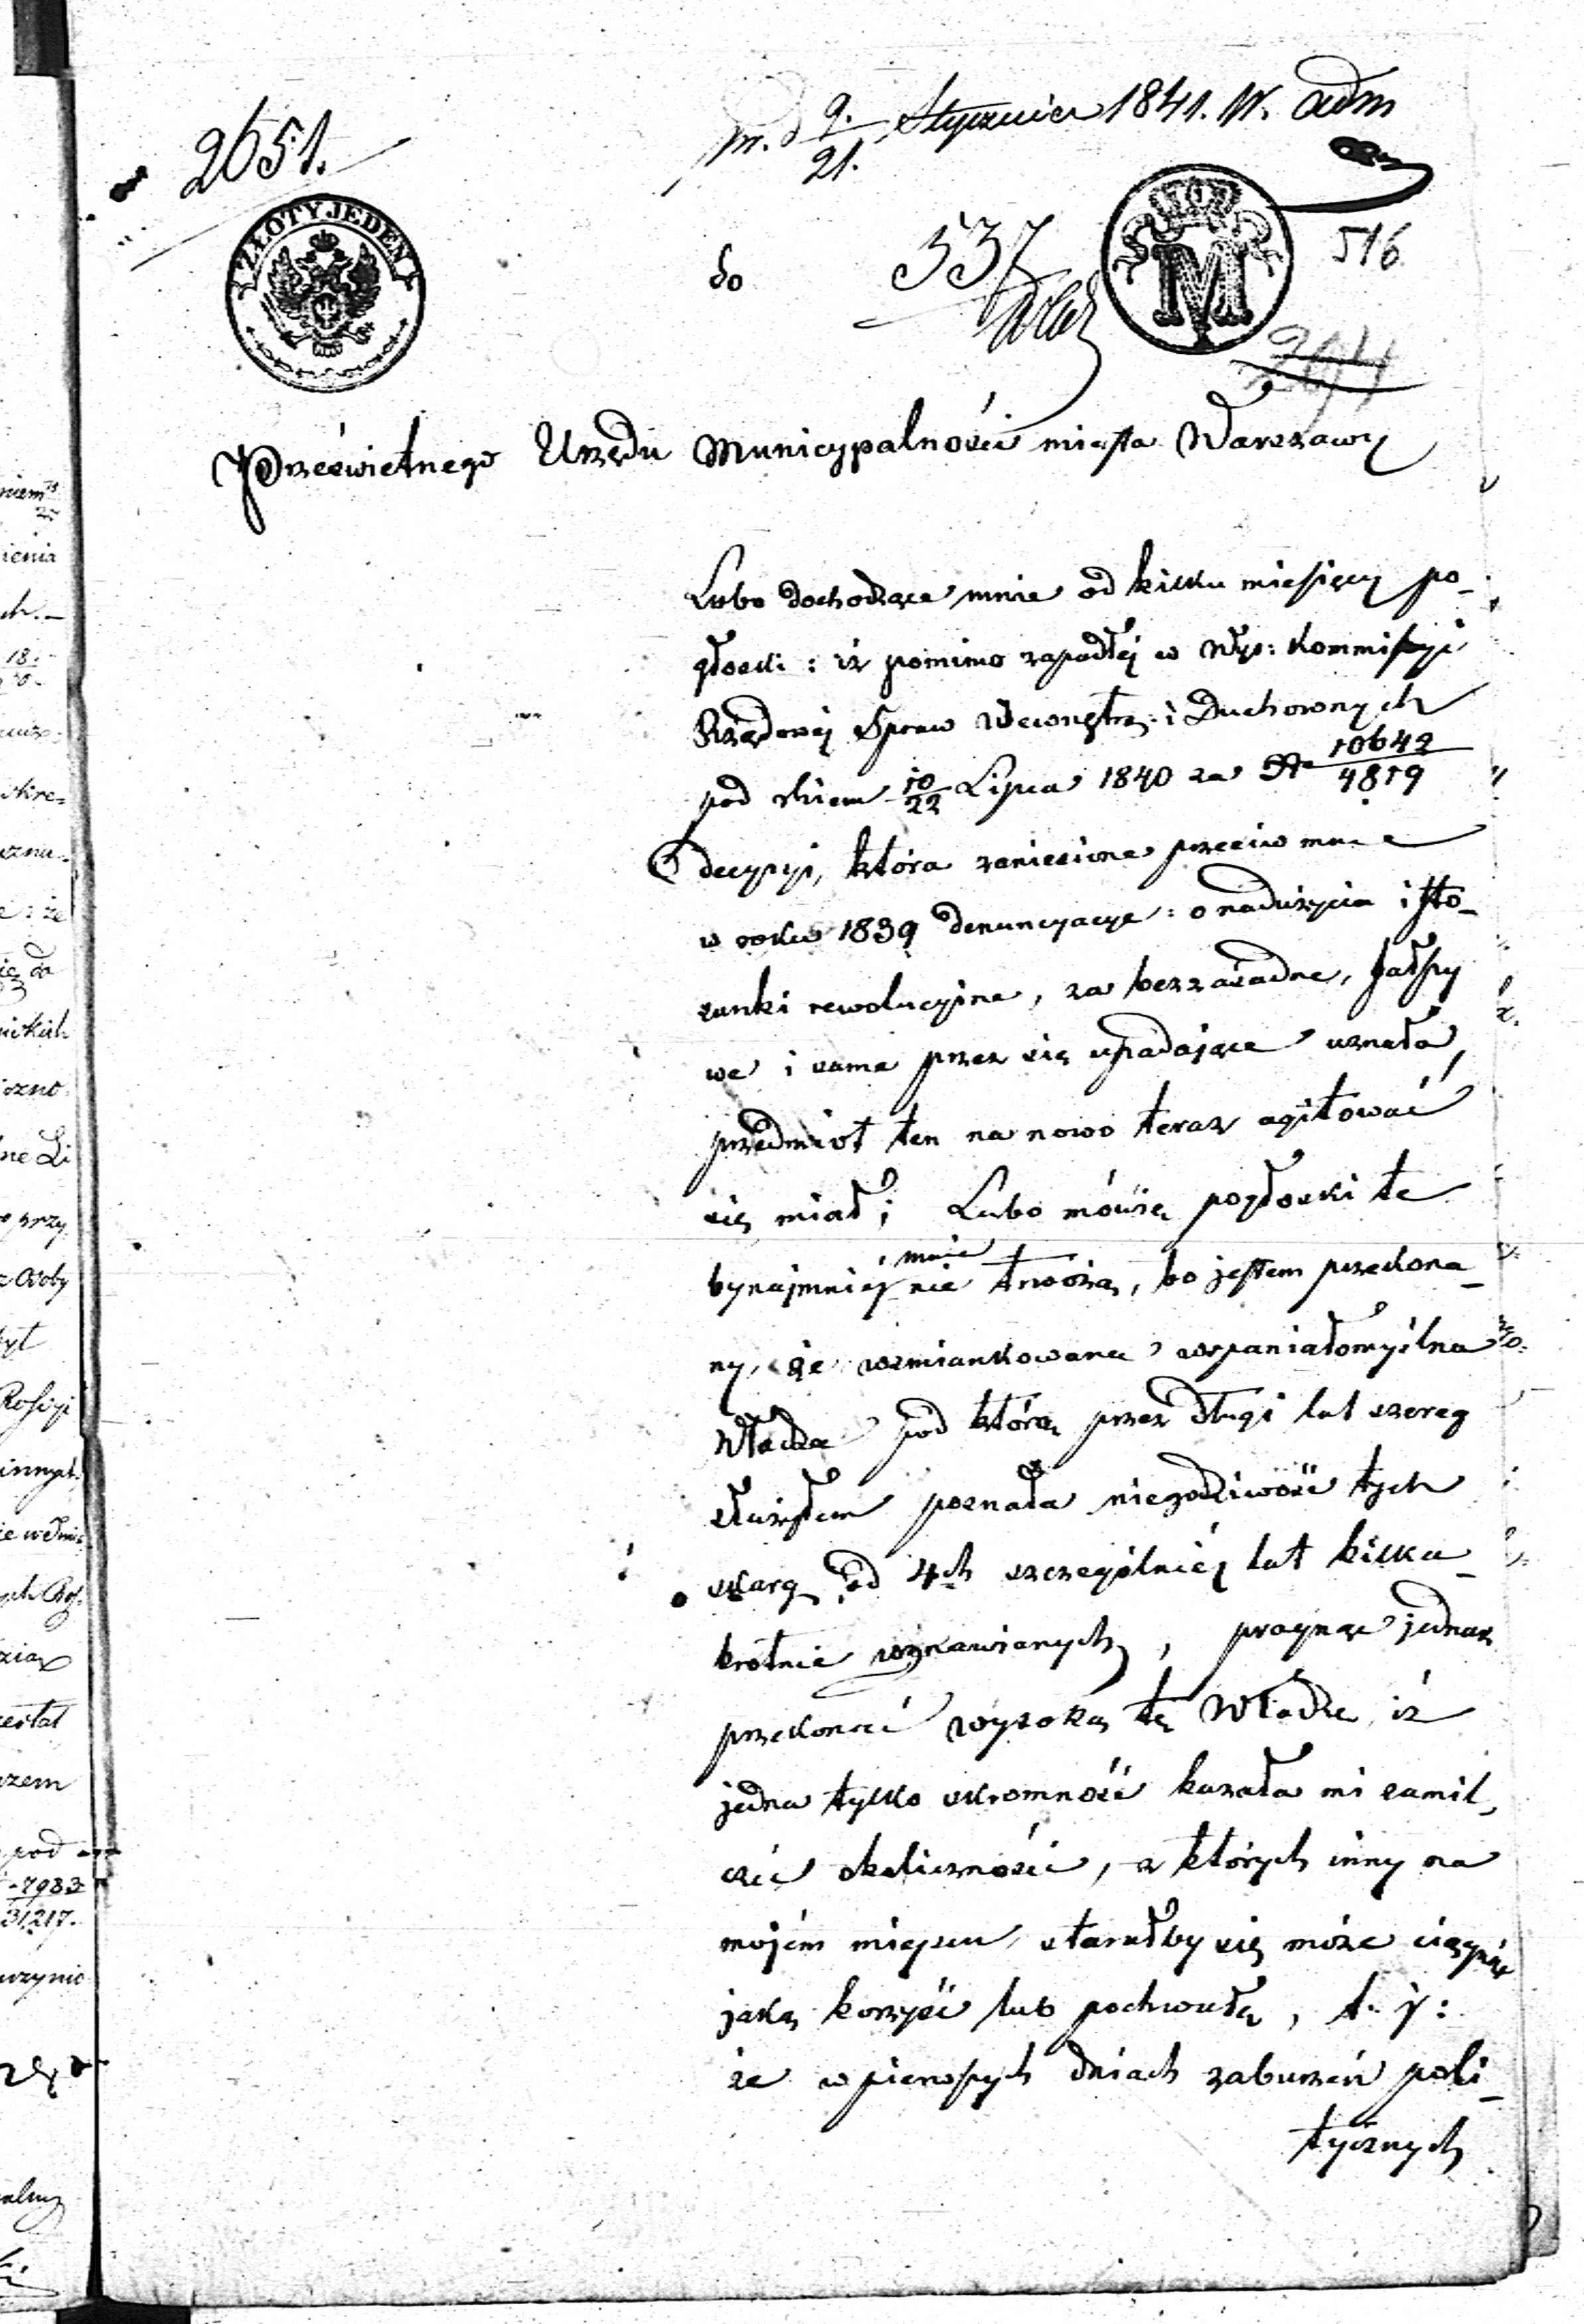 2651.
pr. d 9/21. Stycznia 1841. W. adm
ZŁOTY JEDEN
do
537
M
516
Prześwietnego Urzędu Municypalności miasta Warszawy
Lubo dochodzące mnie od kilku miesięcy po-
głoski: iż pomimo zapadłéj w Wys: Kommissyi
Rządowéj Spraw Wewnętrz: i Duchownych
pod dniem 10/22 Lipca 1840 za № 10642/4819
decyzyi, która zaniesione przeciw mnie
w roku 1839 denuncyacye: o nadużycia i sto-
sunki rewolucyine, za bezzasadne, fałszy
we i same przez się upadające uznała,
przedmiot ten na nowo teraz agitować
się miał; Lubo mówię pogłoski te
bynajmniéj mnie nie trwożą, bo jestem przekona-
ny, że wzmiankowana wspaniałomyślna
Władza pod którą przez długi lat szereg
służyłem poznała niegodziwość tych
skarg od 4ch szczególniéj lat kilka-
krotnie wznawianych, pragnąc jednak
przekonać wysoką tę Władzę, iż
jedna tylko skromność kazała mi zamil-
czeć okoliczności, z których inny na
mojém miejscu, starałby się może ciągnąć
jaką korzyść lub pochwałę, t. j:
że w pierwszych dniach zaburzeń poli-
tycznych